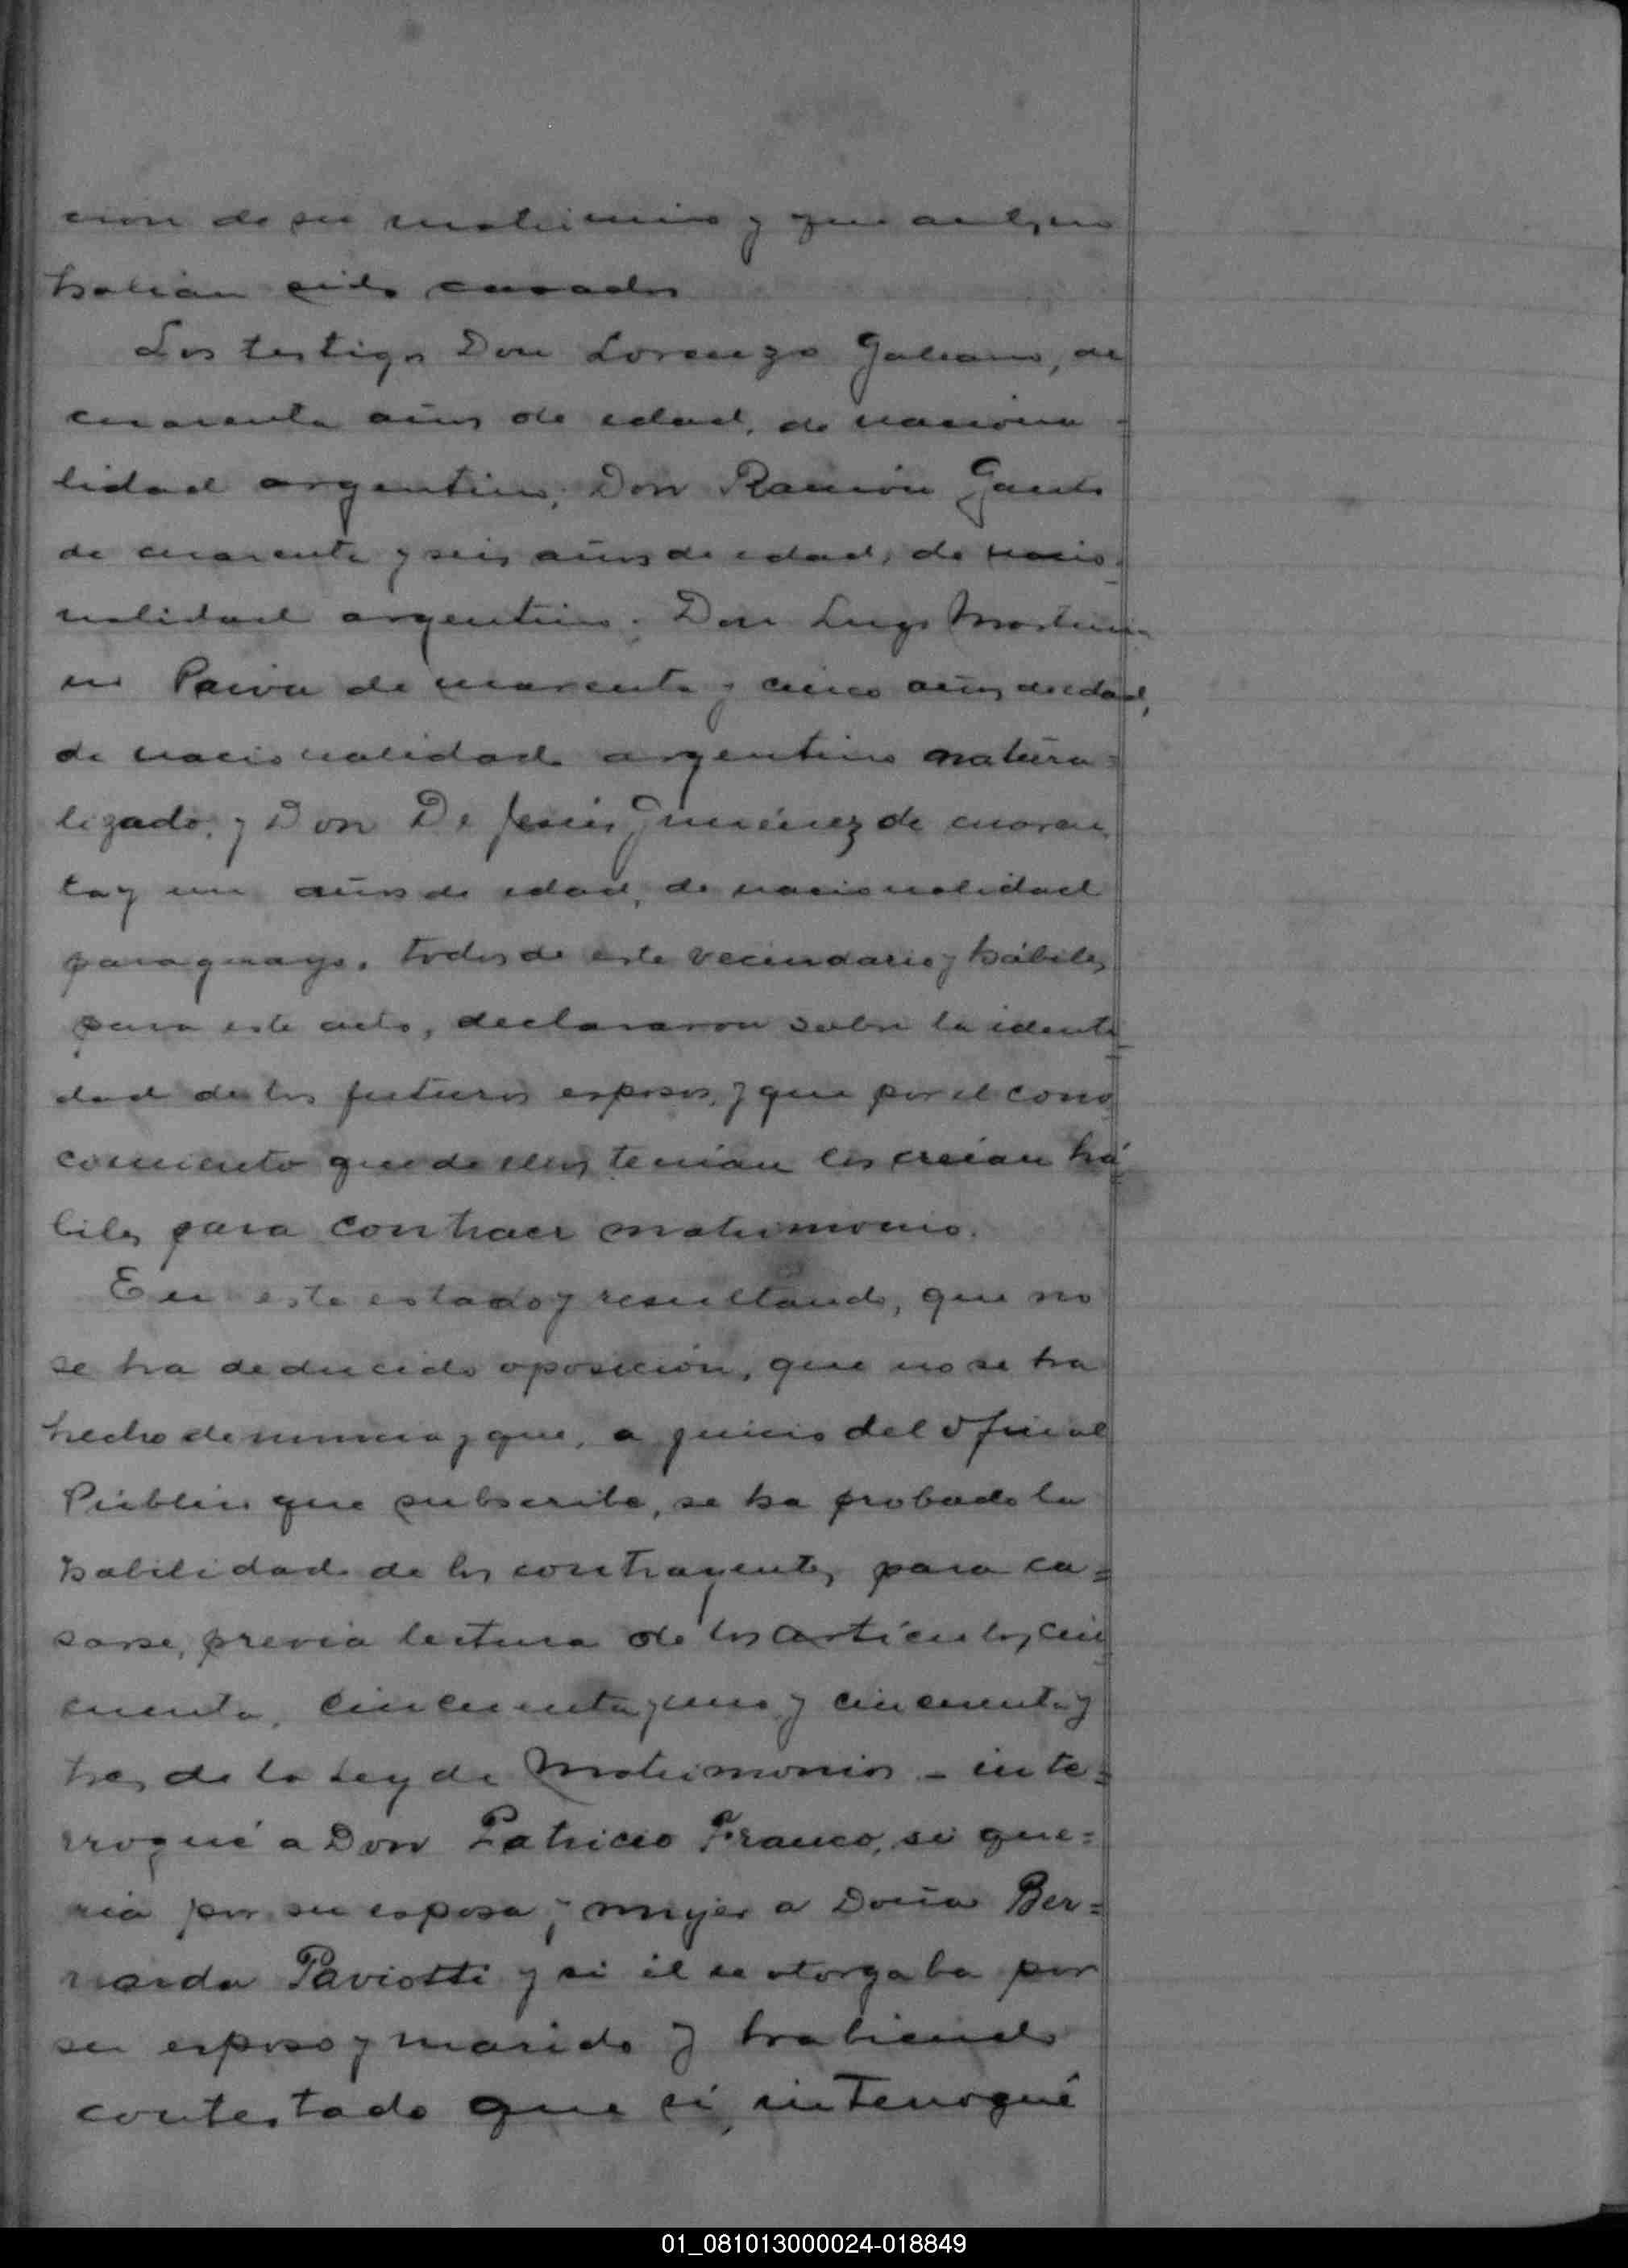 cion de su matrimonio y que antes no
habían sido casados
Los testigos Don Lorenzo Galeano, de
cuarenta años de edad, de naciona=
lidad argentino, Don Ramón Gauto
de cuarenta y seis años de edad, de nacio-
nalidad argentino. Don Lugo
Paiva de cuarenta y cinco años de edad,
de nacionalidad argentino natura=
lizado, y Don De Jesús Giménez de cuaren
ta y un años de edad, de nacionalidad
paraguayo. todos de este vecindario y hábiles
para este acto, declararon sobre la identi
dad de los futuros esposos, y que por el cono
cimiento que de ellos tenían los creían há
biles para contraer matrimonio.
En este estado y resultando, que no
se ha deducido oposición, que no se ha
hecho denuncia y que, a juicio del Oficial
Público que subscribe, se ha probado la
habilidad de los contrayentes para ca=
sarse, previa lectura de los artículos, cin
cuenta, cincuenta y uno y cincuenta y
tres de la Ley de Matrimonios - inte=
rrogué a Don Patricio Franco, si que=
ría por su esposa y mujer a Doña Ber=
narda Paviotti y si él se otorgaba por
su esposo y marido y habiendo
contestado que sí, interrogué
01_081013000024-018849